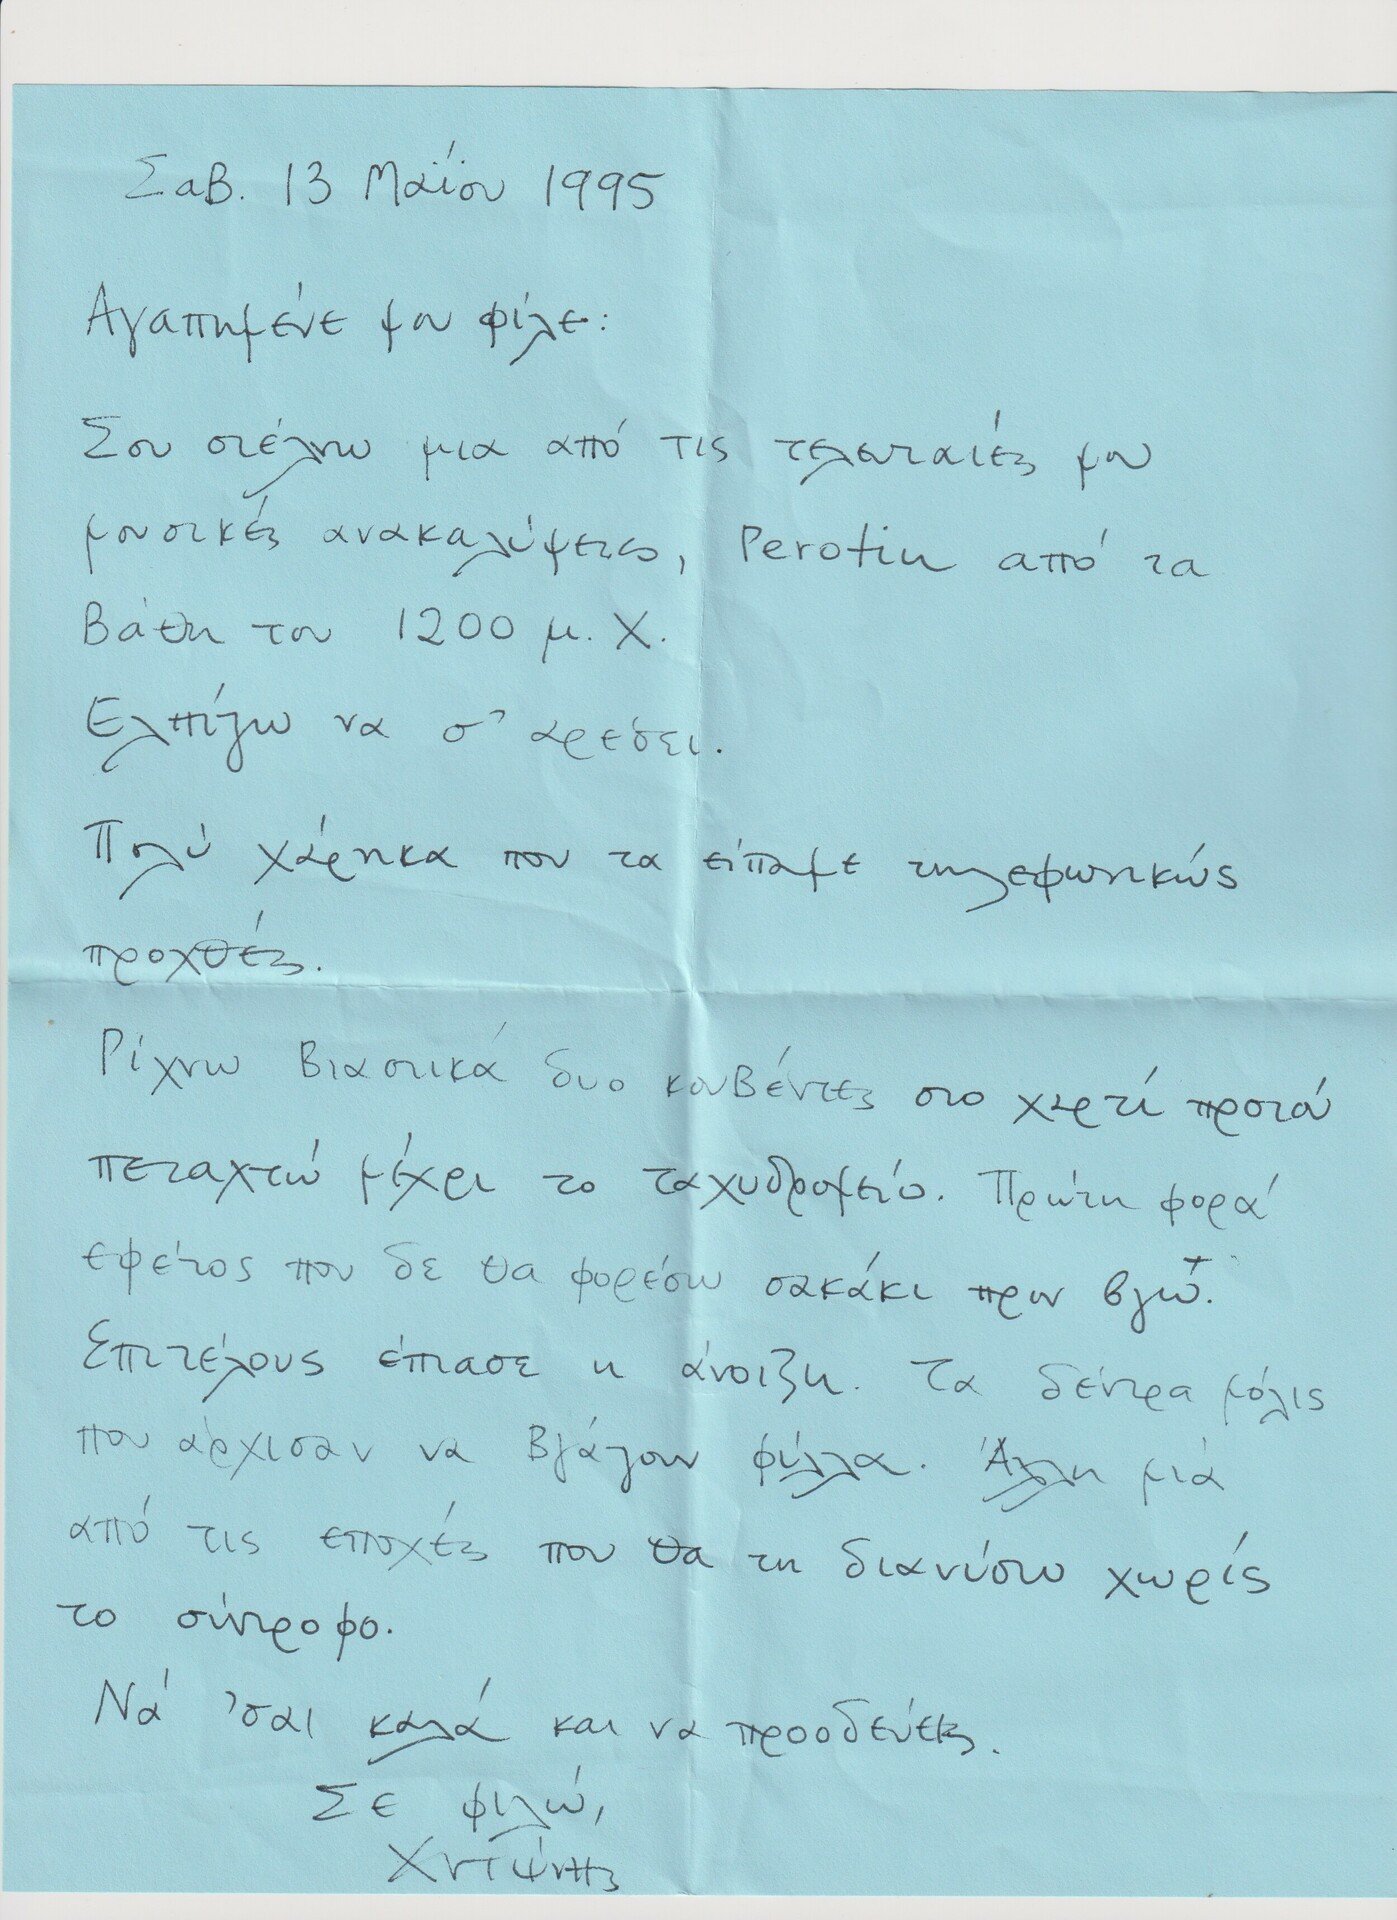 Σαβ. 13 Μαΐου 1995
Αγαπημένε μου φίλε:
Σου στέλνω μια από τις τελευταίές μου
μουσικές ανακαλύψεις, Perotin από τα
βάθη του 1200 μ.Χ.
Ελπίζω να σ' αρέσει.
Πολύ χάρηκα που τα είπαμε τηλεφωνικώς
προχθές.
Ρίχνω βιαστικά δυο κουβέντες στο χαρτί προτού
πεταχτώ μέχρι το ταχυδρομείο. Πρώτη φορά
εφέτος που δε θα φορέσω σακάκι πριν βγω.
Επιτέλους έπιασε η άνοιξη. Τα δέντρα μόλις
που άρχισαν να βγάζουν φύλλα. Άλλη μιά
από τις εποχές που θα τη διανύσω χωρίς
το σύντροφο.
Νά 'σαι καλά και να προοδεύεις.
Σε φιλώ,